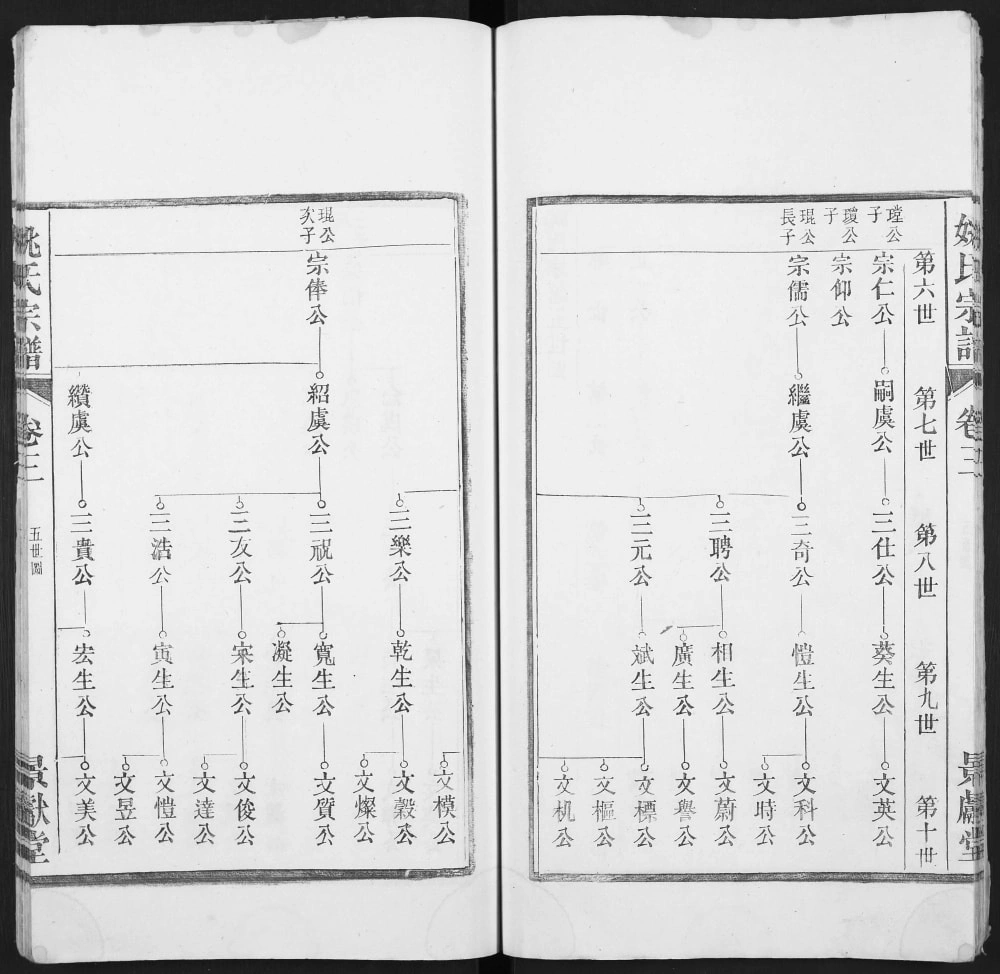 姚氏宗譜
卷三
景獻堂
第六世
第七世
第八世
第九世
第十世
瑩公子
宗仁公
嗣虞公
三仕公
葵生公
文英公
瓊公子
宗仰公
琨公長子
宗儒公
繼虞公
三奇公
愷生公
文科公
文時公
三聘公
相生公
文蔚公
廣生公
文譽公
三元公
斌生公
文標公
文樞公
文机公
文模公
三樂公
乾生公
文穀公
文燦公
琨公次子
宗俸公
紹虞公
三祝公
寬生公
文質公
凝生公
三友公
寀生公
文俊公
文達公
三浩公
寅生公
文愷公
文昱公
纘虞公
三貴公
宏生公
文美公
姚氏宗譜
卷三
五世圖
景獻堂